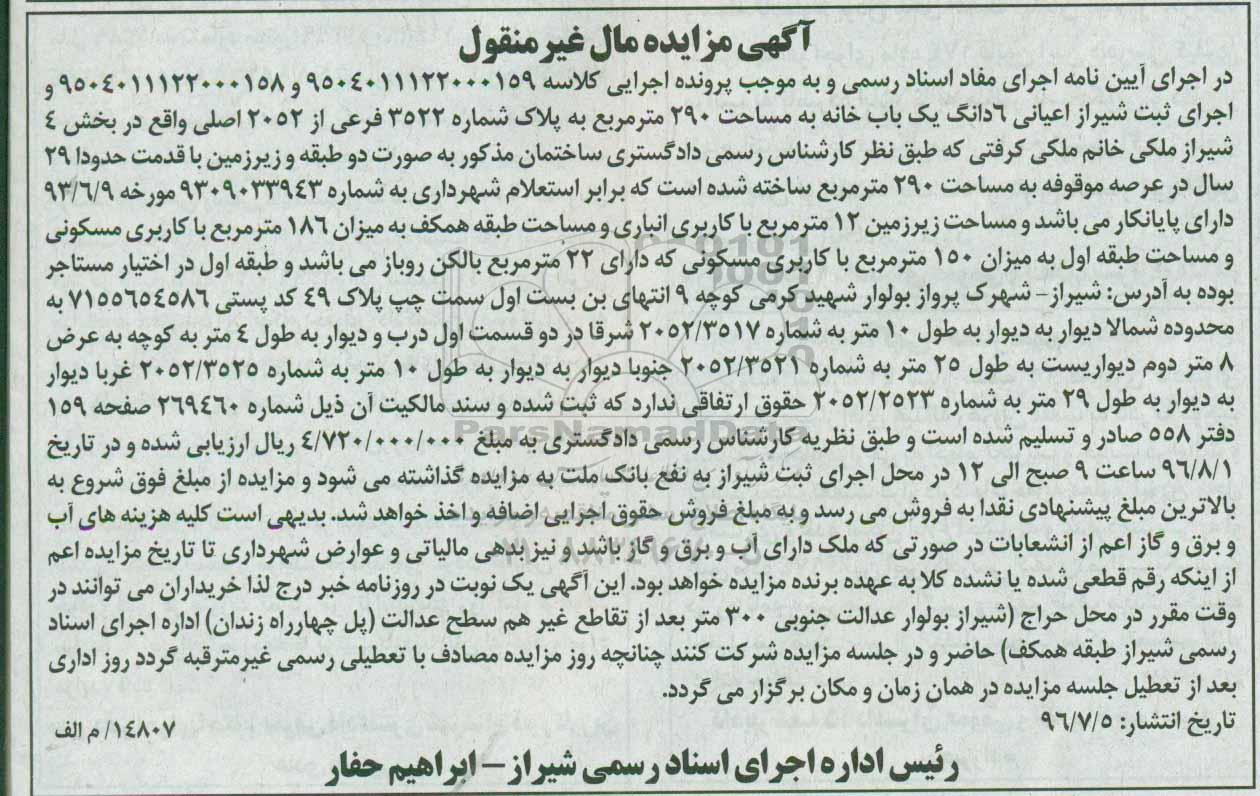 آگهی مزایده مال غیر منقول
در اجرای آیین نامه اجرای مفاد اسناد رسمی و به موجب پرونده اجرایی کلاسه ۹۵۰۴۰۱۱۱۲۲۰۰۰۱۵۹ و ۹۵۰۴۰۱۱۱۲۲۰۰۰۱۵۸ و
اجرای ثبت شیراز اعیانی ۶دانگ یک باب خانه به مساحت ۲۹۰ مترمربع به پلاک شماره ۳۵۲۲ فرعی از ۲۰۵۲ اصلی واقع در بخش ۴
شیراز ملکی خانم ملکی کرفتی که طبق نظر کارشناس رسمی دادگستری ساختمان مذکور به صورت دو طبقه و زیرزمین با قدمت حدودا ۲۹
سال در عرصه موقوفه به مساحت ۲۹۰ مترمربع ساخته شده است که برابر استعلام شهرداری به شماره ۹۳۰۹۰۳۳۹۴۳ مورخه ۹۳/۶/۹
دارای پایانکار می باشد و مساحت زیرزمین ۱۲ مترمربع با کاربری انباری و مساحت طبقه همکف به میزان ۱۸۶ مترمربع با کاربری مسکونی
و مساحت طبقه اول به میزان ۱۵۰ مترمربع با کاربری مسکونی که دارای ۲۲ مترمربع بالکن روباز می باشد و طبقه اول در اختیار مستاجر
بوده به آدرس: شیراز- شهرک پرواز بولوار شهید کرمی کوچه ۹ انتهای بن بست اول سمت چپ پلاک ۴۹ کد پستی ۷۱۵۵۶۵۴۵۸۶ به
محدوده شمالا دیوار به دیوار به طول ۱۰ متر به شماره ۲۰۵۲/۳۵۱۷ شرقا در دو قسمت اول درب و دیوار به طول ۴ متر به کوچه به عرض
۸ متر دوم دیواریست به طول ۲۵ متر به شماره ۲۰۵۲/۳۵۲۱ جنوبا دیوار به دیوار به طول ۱۰ متر به شماره ۲۰۵۲/۳۵۲۵ غربا دیوار
به دیوار به طول ۲۹ متر به شماره ۲۰۵۲/۲۵۲۳ حقوق ارتفاقی ندارد که ثبت شده و سند مالکیت آن ذیل شماره ۲۶۹۴۶۰ صفحه ۱۵۹
دفتر ۵۵۸ صادر و تسلیم شده است و طبق نظریه کارشناس رسمی دادگستری به مبلغ ۴/۷۲۰/۰۰۰/۰۰۰ ریال ارزیابی شده و در تاریخ
۹۶/۸/۱ ساعت ۹ صبح الی ۱۲ در محل اجرای ثبت شیراز به نفع بانک ملت به مزایده گذاشته می شود و مزایده از مبلغ فوق شروع به
بالاترین مبلغ پیشنهادی نقدا به فروش می رسد و به مبلغ فروش حقوق اجرایی اضافه و اخذ خواهد شد. بدیهی است کلیه هزینه های آب
و برق و گاز اعم از انشعابات در صورتی که ملک دارای آب و برق و گاز باشد و نیز بدهی مالیاتی و عوارض شهرداری تا تاریخ مزایده اعم
از اینکه رقم قطعی شده یا نشده کلا به عهده برنده مزایده خواهد بود. این آگهی یک نوبت در روزنامه خبر درج لذا خریداران می توانند در
وقت مقرر در محل حراج (شیراز بولوار عدالت جنوبی ۳۰۰ متر بعد از تقاطع غیر هم سطح عدالت (پل چهارراه زندان) اداره اجرای اسناد
رسمی شیراز طبقه همکف) حاضر و در جلسه مزایده شرکت کنند چنانچه روز مزایده مصادف با تعطیلی رسمی غیرمترقبه گردد روز اداری
بعد از تعطیل جلسه مزایده در همان زمان و مکان برگزار می گردد.
تاریخ انتشار: ۹۶/۷/۵
۱۴۸۰۷/ م الف
رئیس اداره اجرای اسناد رسمی شیراز – ابراهیم حفار
ParsNamadData